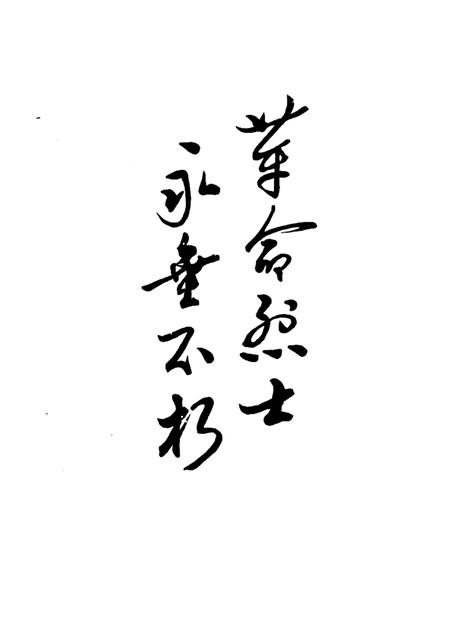 革命烈士
永垂不朽